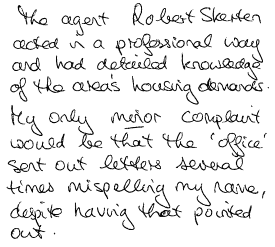 The agent Robert Skerten
acted in a professional way
and had detailed knowledge
of the area's housing demands.
My only minor complaint
would be that the 'office'
sent out letters several
times mispelling my name,
despite having that pointed
out.